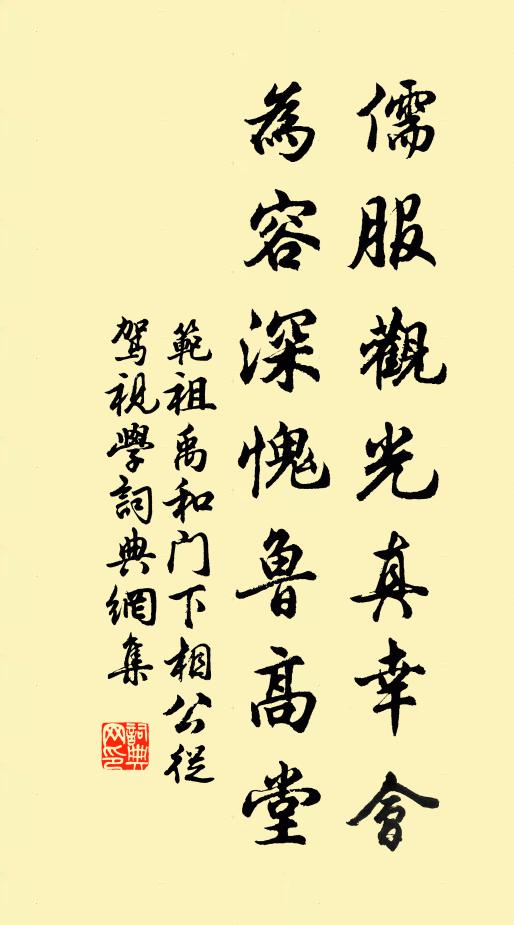 儒服觀光真幸會
為容深愧魯高堂
範祖禹和门下相公從
駕視學詞典網集
詞典
网印